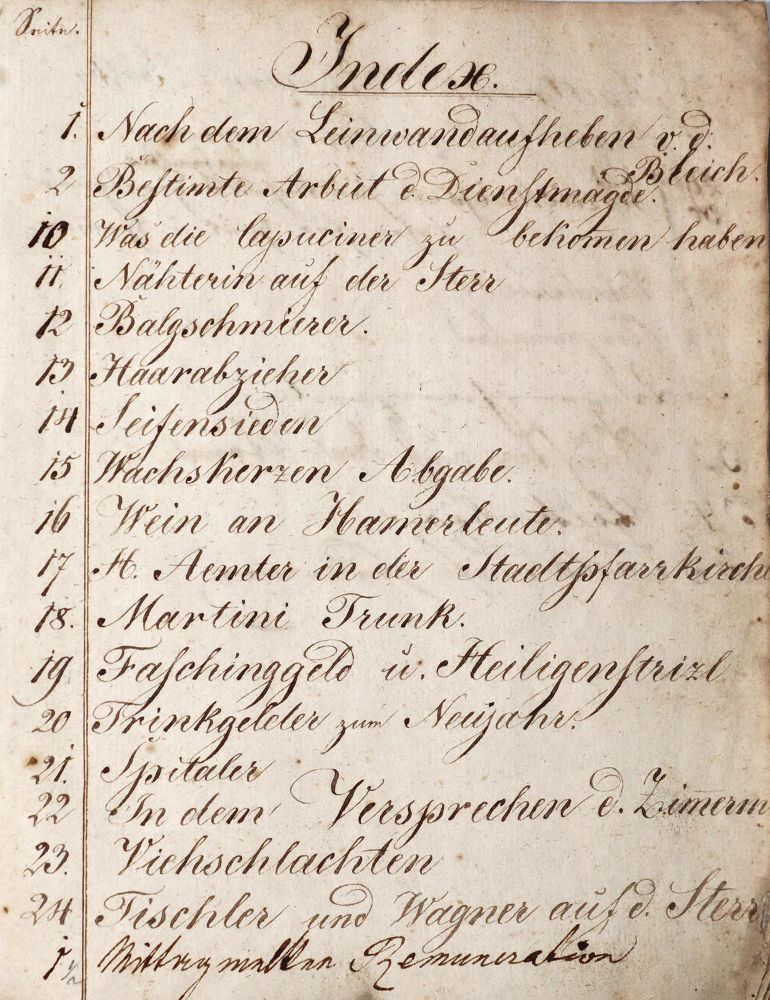 Seite.
Index.
1. Nach dem Leinwandaufheben v. d.
Bleich.
2 Bestimte Arbeit d. Dienstmägde.
10 Was die Capuciner zu bekom̄en haben
11. Nähterin auf der Sterr
12 Balgschmierer.
13 Haarabzieher
14 Seifensieden
15 Wachskerzen Abgabe.
16 Wein an Ham̄erleute.
17 H. Aemter in der Stadtpfarrkirche
18. Martini Trunk.
19 Faschinggeld u. Heiligenstrizl
20 Trinkgelder zum Neujahr.
21. Spitaler
22 In dem Versprechen d. Zim̄erm
23. Viehschlachten
24 Tischler und Wagner auf d. Sterr
1 ½ Remuneration